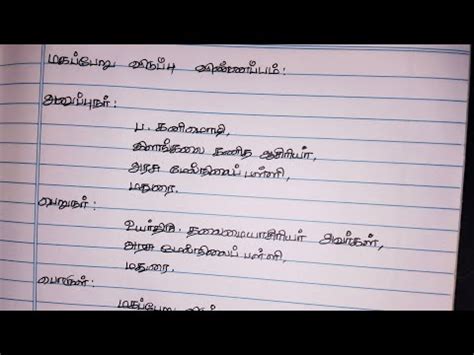 மகப்பேறு விடுப்பு விண்ணப்பம் :
அனுப்புநர் :
ப. கனிமொழி,
இளங்கலை கணித ஆசிரியர்,
அரசு மேல்நிலைப் பள்ளி,
மதுரை.
பெறுநர் :
உயர்திரு. தலைமையாசிரியர் அவர்கள்,
அரசு மேல்நிலைப் பள்ளி,
மதுரை.
பொருள் :
மகப்பேறு